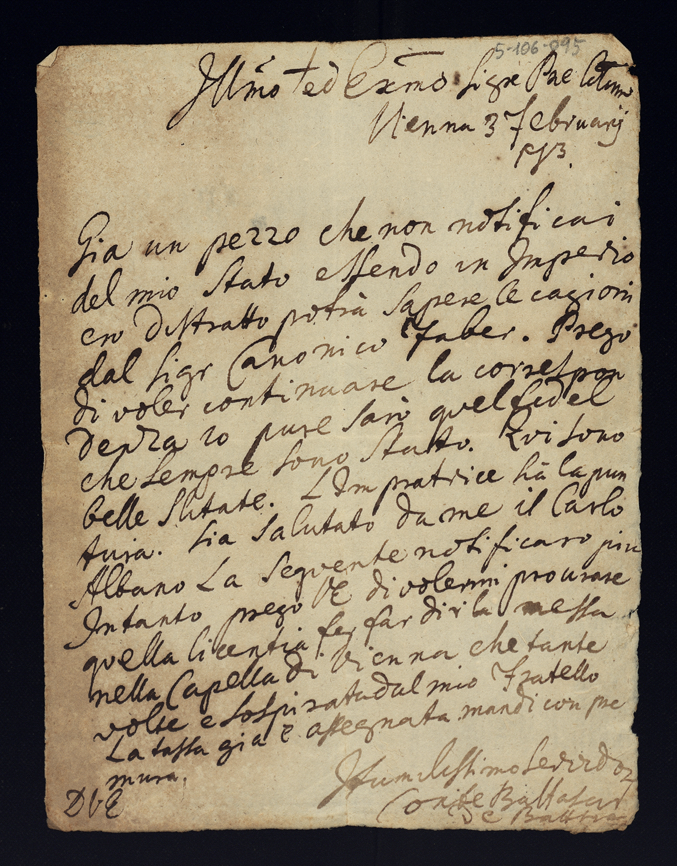 5-106-095
Illmo ed Exmo Sigr
Vienna 3 Februarij
Gia un pezzo che non notificai
del mio Stato essendo in Imperio
ero distratto potrà sapere le cagioni
dal Sigr Canonico Faber. Prego
di voler continuare la correspon
denza io pure sarò quel fidel
che sempre sono stato. Qvi sono
belle Slitate. L Impratrice hà la pun
tura. Sia Salutato da me il Carlo
Albano La Seqvente notificaro piu
Intanto prego VE di volermi procurare
qvella licentia per far dir la messa
nella Capella di Vienna che tante
volte e sospirata dal mio Fratello
La tassa gia è assegnata mandi con pre
mura.
DVE
Humilissimo
Conte Baltasar